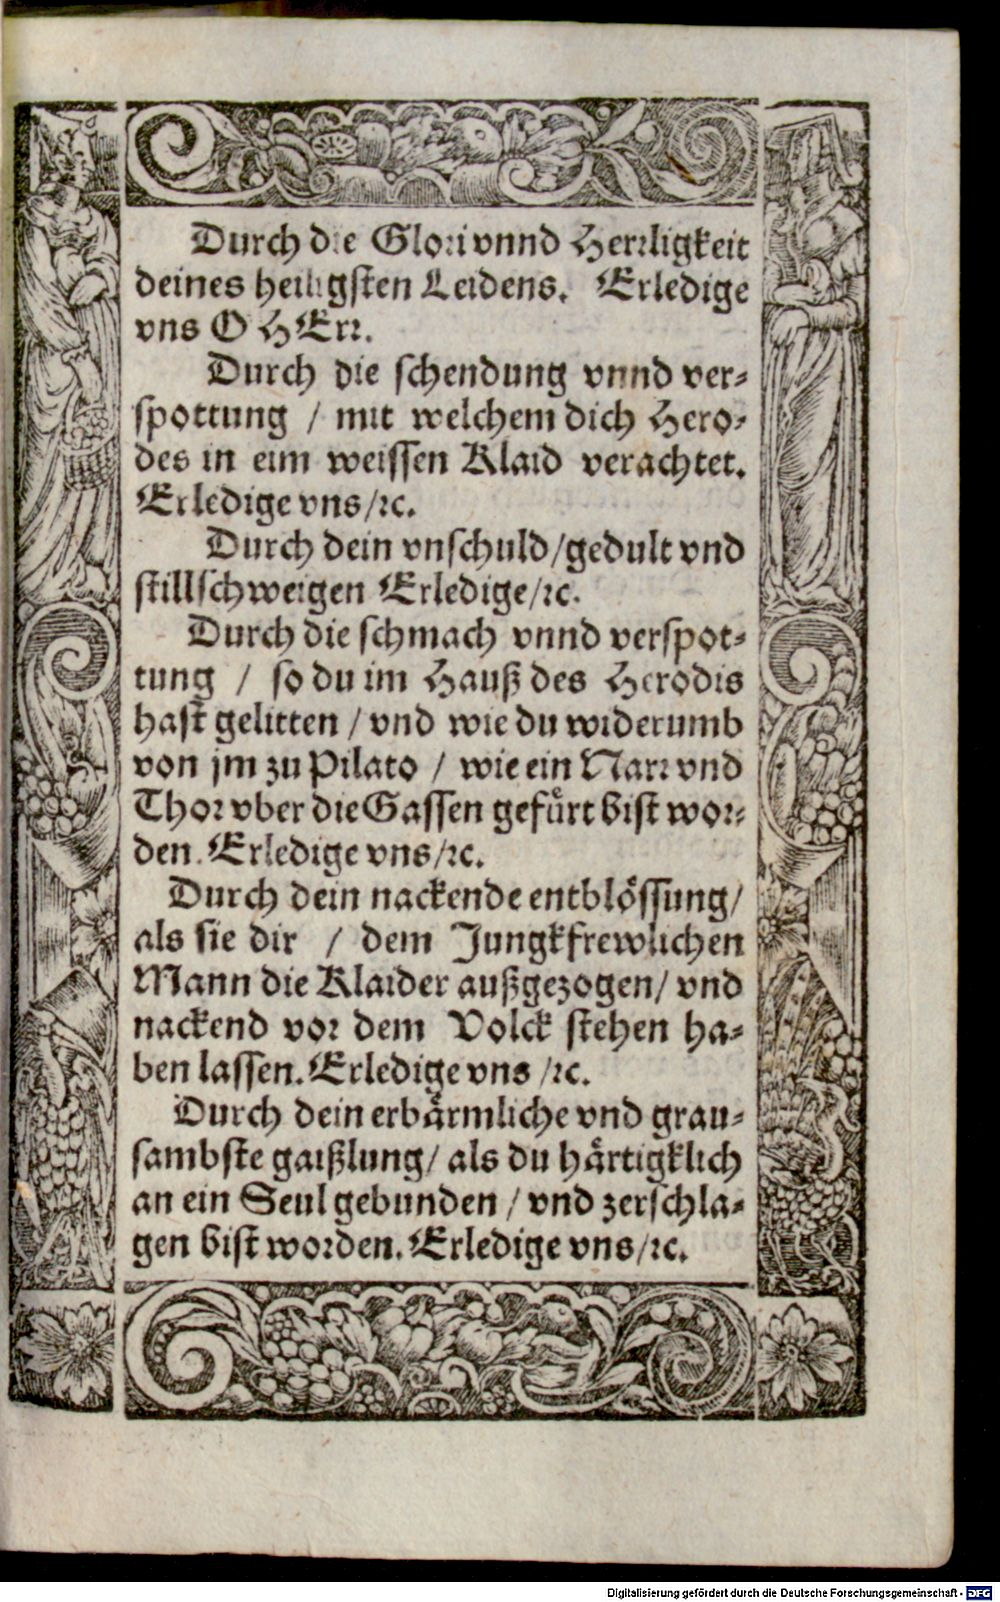 Durch die Glori vnnd Herrligkeit
deines heiligsten Leidens. Erledige
vns O HErr.
Durch die schendung vnnd ver-
spottung / mit welchem dich Hero-
des in eim weissen Klaid verachtet.
Erledige vns /ꝛc.
Durch dein vnschuld /gedult vnd
stillschweigen Erledige /ꝛc.
Durch die schmach vnnd verspot-
tung / so du im Hauß des Herodis
hast gelitten / vnd wie du widerumb
von jm zu Pilato / wie ein Narr vnd
Thor vber die Gassen gefuͤrt bist wor-
den. Erledige vns /ꝛc.
Durch dein nackende entbloͤssung /
als sie dir / dem Jungkfrewlichen
Mann die Klaider außgezogen / vnd
nackend vor dem Volck stehen ha-
ben lassen. Erledige vns /ꝛc.
Durch dein erbaͤrmliche vnd grau-
sambste gaißlung / als du haͤrtigklich
an ein Seul gebunden / vnd zerschla-
gen bist worden. Erledige vns /ꝛc.
Digitalisierung gefördert durch die Deutsche Forschungsgemeinschaft - DFG